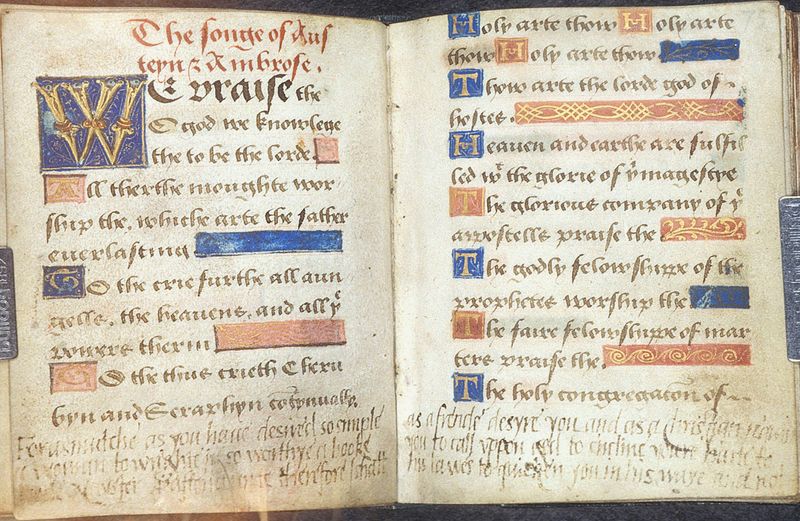 The songe of Aus
teyn & Ambrose.
WE praise the
O god we knowlege
the to be the lorde
All therthe moughte wor-
ship the, whiche arte the father
everlasting
To the crie furthe all aun
gells, the heavens, and all yͤ
powers therin
To the thus crieth Cheru
byn and Seraphyn contynually.
Forasmutche as you have desired so simple
a woman to wrighte in so worthye a booke
mayster therfore I shalle
Holy arte thow Holy arte
thow Holy arte thow
Thow arte the lorde god of
hostes.
Heaven and earthe are fulfil
led wͭ the glorie of yͤ magestye
The glorious company of yͤ
apostells praise the
The godly felowshippe of the
prophetes worship the
The faire felowshippe of mar
ters praise the.
The holy congregacōn of
as a frende desyre you and as a christian require
you to call uppon god to encline youre harte to
his lawes to quicken you in his waye and not